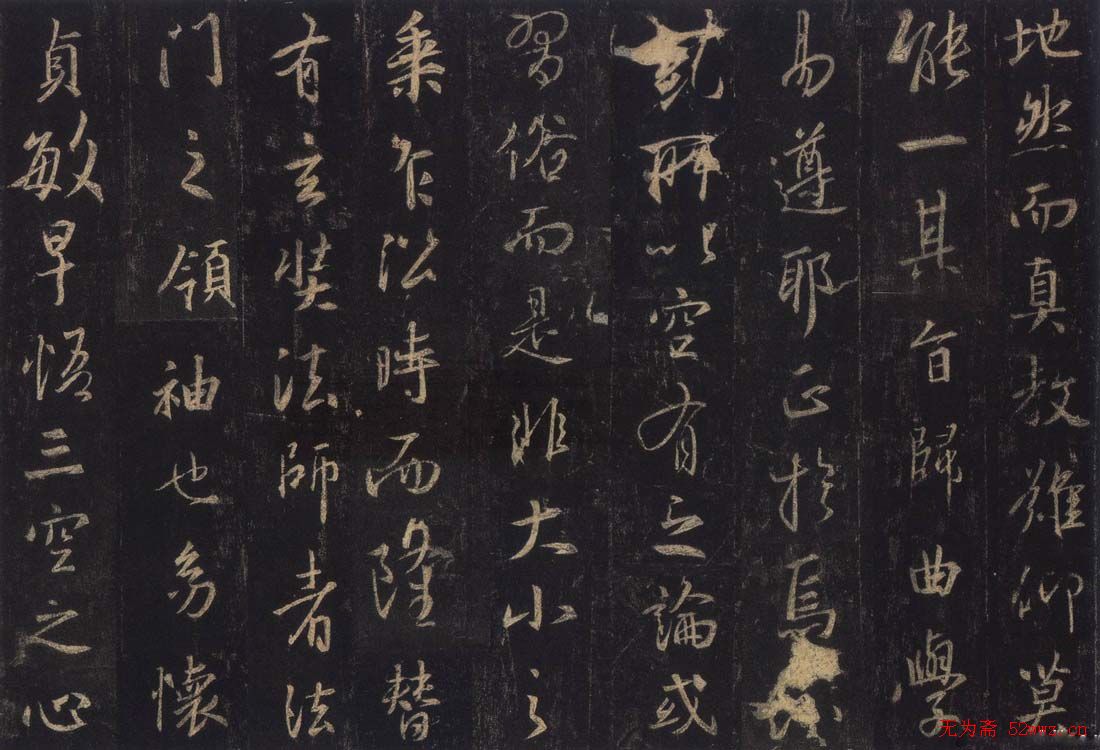 地然而真教難仰莫
能一其旨歸曲學
易遵耶正於焉
所以空有之論或
習俗而是非大小之
乘乍沿時而隆替
有玄奘法師者法
門之領袖也幼懷
貞敏早悟三空之心
无为斋 52wwz.cn